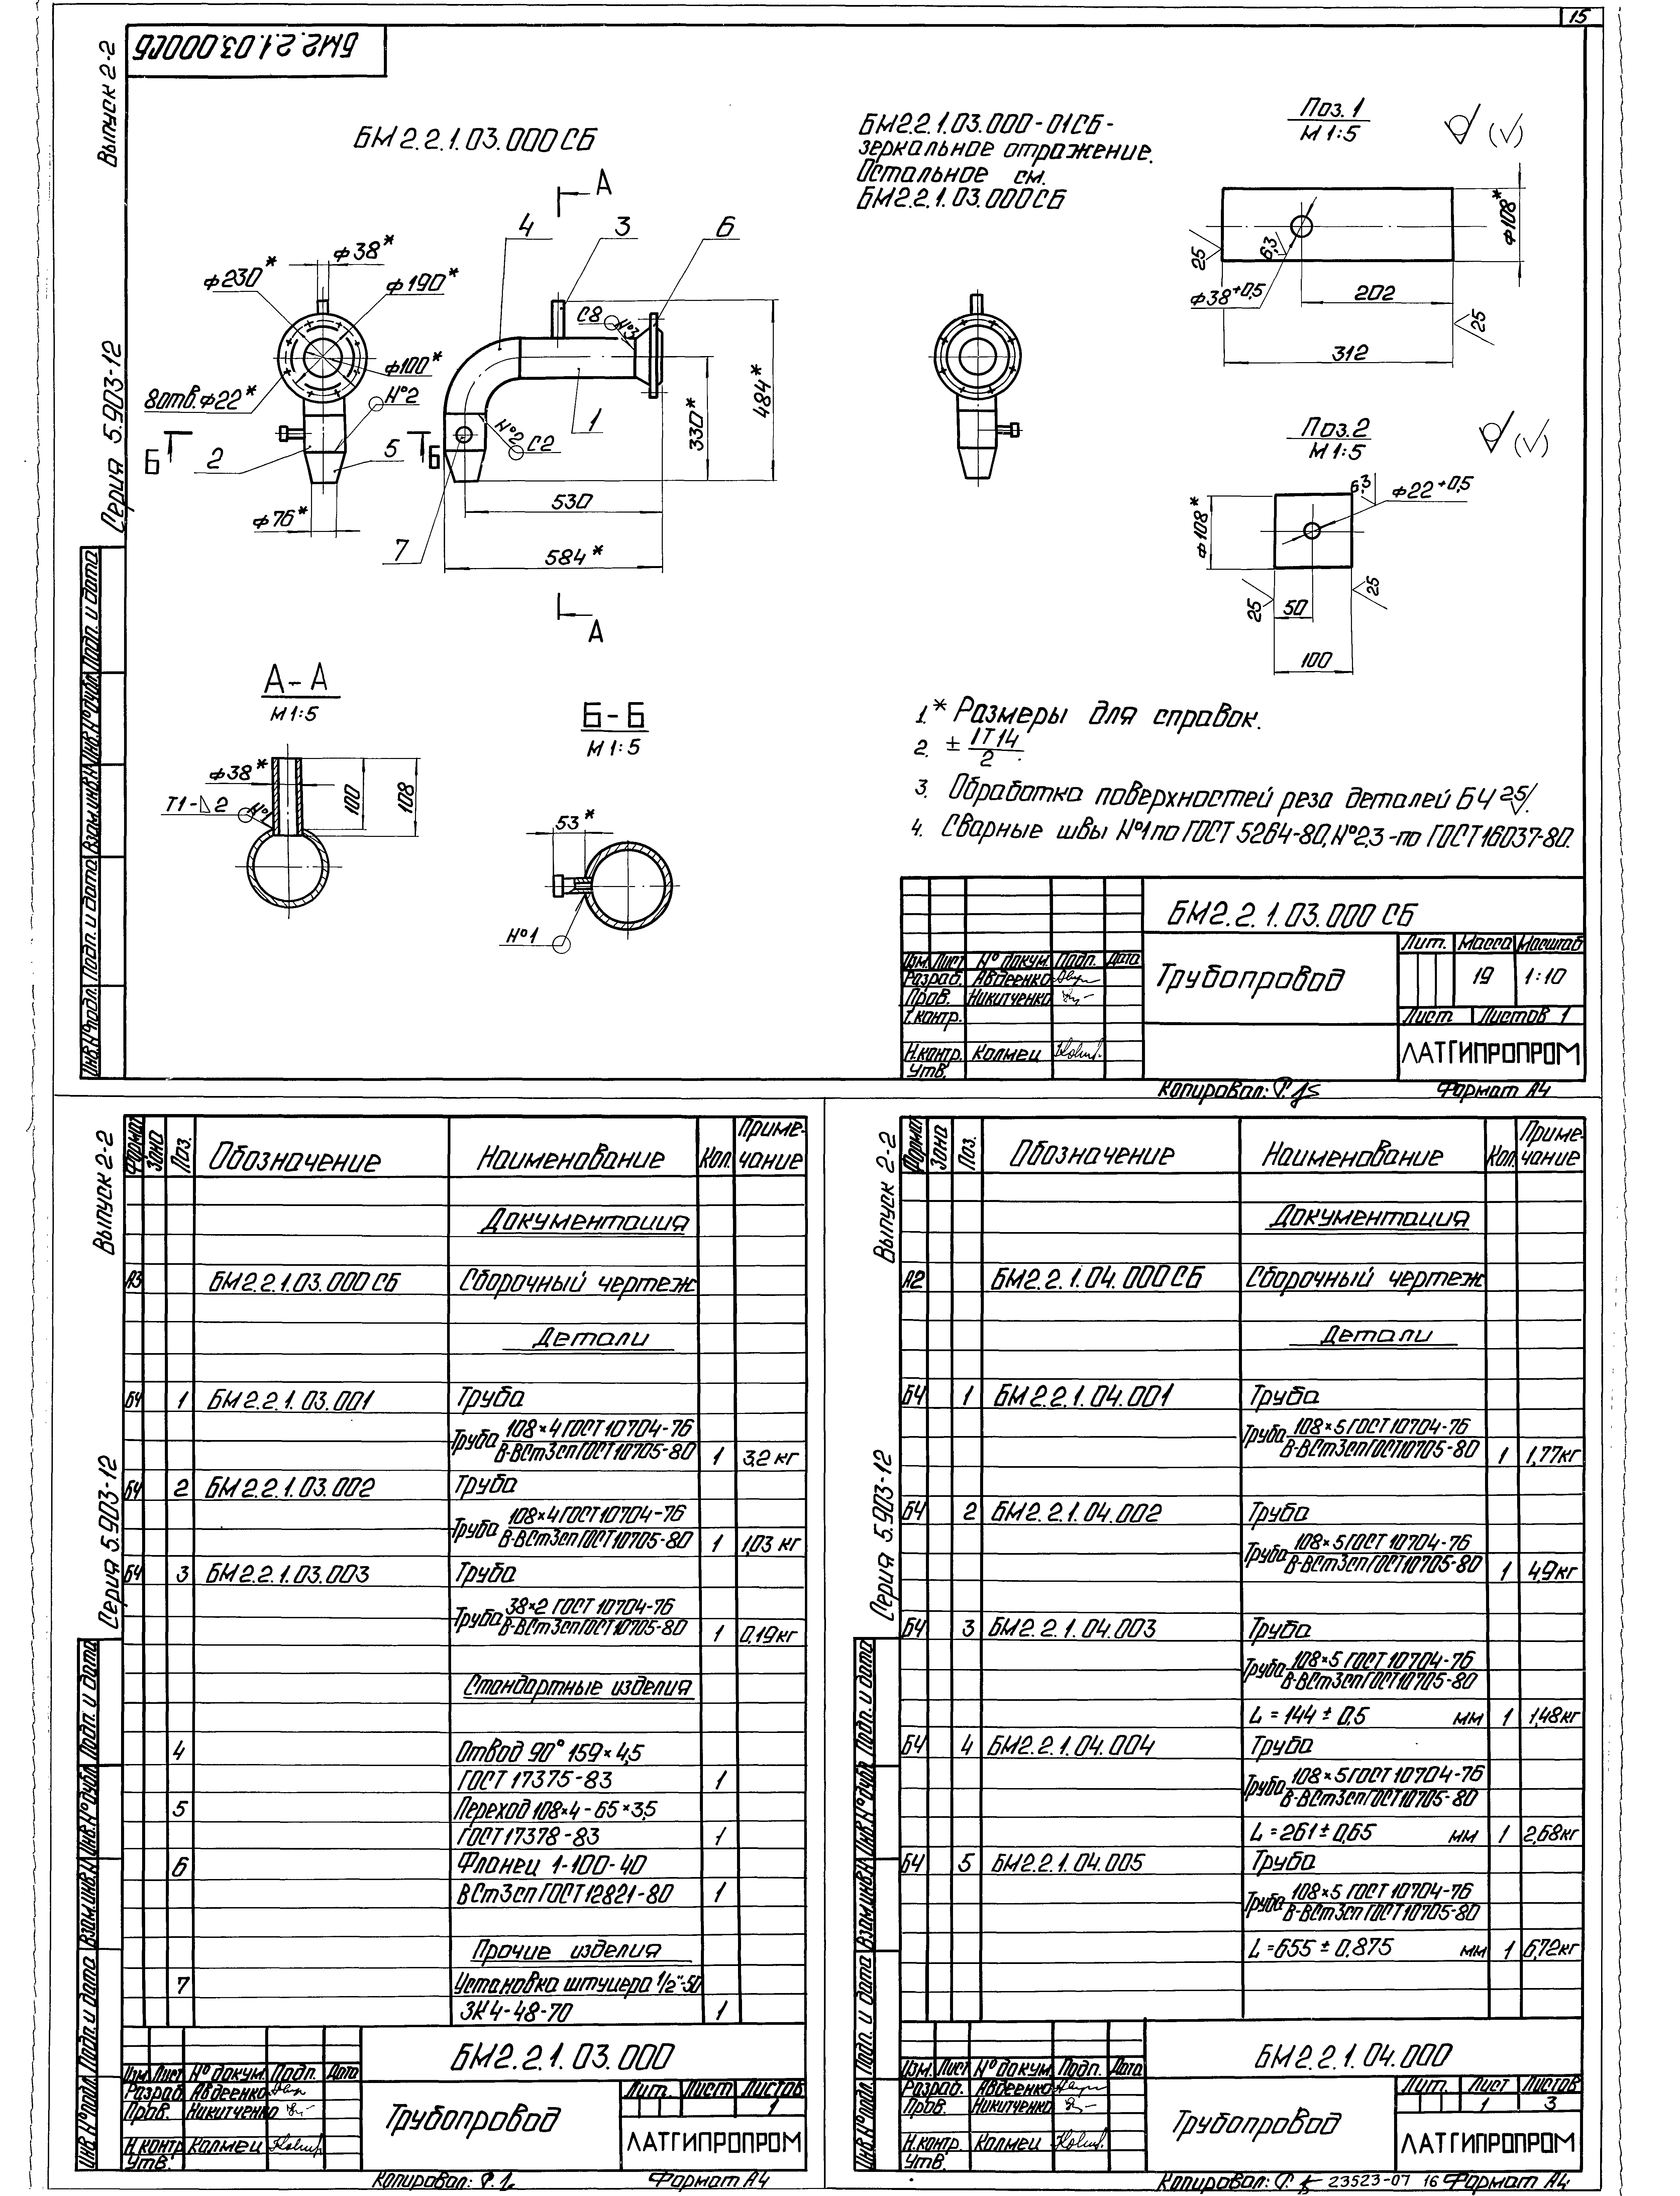 15
БМ2.2.1.03.000СБ
Выпуск 2-2
Серия 5.903-12
БМ2.2.1.03.000СБ
БМ2.2.1.03.000-01СБ-
зеркальное отражение.
Остальное см.
БМ2.2.1.03.000СБ
Поз.1
М 1:5
(√)
А
4
3
6
ф38*
ф230*
ф190*
ф100*
8отв.ф22*
№2
Б
2
5
Б
ф76*
С8
№3
1
№2
С2
7
530
584*
330*
484*
А
25
6,3
ф38+0,5
202
312
ф108*
25
Поз.2
М1:5
(√)
6,3
ф22+0,5
ф108*
25
50
100
25
А-А
М1:5
ф38*
Т1-△2
№1
100
108
Б-Б
М1:5
53*
№1
1.* Размеры для справок.
2. ± IT14/2.
3. Обработка поверхностей реза деталей БЧ 25/.
4. Сварные швы №1 по ГОСТ 5264-80, №2,3 -по ГОСТ 16037-80.
БМ2.2.1.03.000 СБ
Трубопровод
Лит. Масса Масштаб
19 1:10
Лист Листов 1
ЛАТГИПРОПРОМ
Изм. Лист № докум. Подп. Дата
Разраб. Авдеенко
Пров. Никитченко
Т.контр.
Н.контр. Калмец
Утв.
Копировал:
Формат А4
Инв.№подл. Подп. и дата Взам.инв.№ Инв.№дубл. Подп. и дата
Выпуск 2-2
Серия 5.903-12
Формат Зона Поз. Обозначение Наименование Кол. Примечание
Документация
А3 БМ2.2.1.03.000СБ Сборочный чертеж
Детали
БЧ 1 БМ2.2.1.03.001 Труба
Труба 108×4 ГОСТ 10704-76
В-ВСт3сп ГОСТ 10705-80 1 3,2 кг
БЧ 2 БМ2.2.1.03.002 Труба
Труба 108×4 ГОСТ 10704-76
В-ВСт3сп ГОСТ 10705-80 1 1,03 кг
БЧ 3 БМ2.2.1.03.003 Труба
Труба 38×2 ГОСТ 10704-76
В-ВСт3сп ГОСТ 10705-80 1 0,19кг
Стандартные изделия
4 Отвод 90° 159×4,5
ГОСТ 17375-83 1
5 Переход 108×4-65×3,5
ГОСТ 17378-83 1
6 Фланец 1-100-40
ВСт3сп ГОСТ 12821-80 1
Прочие изделия
7 Установка штуцера 1/2"-50
ЗК4-48-70 1
БМ2.2.1.03.000
Изм. Лист № докум. Подп. Дата
Разраб. Авдеенко
Пров. Никитченко
Н.контр. Калмец
Утв.
Трубопровод
Лит. Лист Листов
1
ЛАТГИПРОПРОМ
Копировал:
Формат А4
Инв.№подл. Подп. и дата Взам.инв.№ Инв.№дубл. Подп. и дата
Выпуск 2-2
Серия 5.903-12
Формат Зона Поз. Обозначение Наименование Кол. Примечание
Документация
А2 БМ2.2.1.04.000СБ Сборочный чертеж
Детали
БЧ 1 БМ2.2.1.04.001 Труба
Труба 108×5 ГОСТ 10704-76
В-ВСт3сп ГОСТ 10705-80 1 1,77кг
БЧ 2 БМ2.2.1.04.002 Труба
Труба 108×5 ГОСТ 10704-76
В-ВСт3сп ГОСТ 10705-80 1 4,9кг
БЧ 3 БМ2.2.1.04.003 Труба
Труба 108×5 ГОСТ 10704-76
В-ВСт3сп ГОСТ 10705-80
L = 144 ± 0,5 мм 1 1,48кг
БЧ 4 БМ2.2.1.04.004 Труба
Труба 108×5 ГОСТ 10704-76
В-ВСт3сп ГОСТ 10705-80
L = 261 ± 0,65 мм 1 2,68кг
БЧ 5 БМ2.2.1.04.005 Труба
Труба 108×5 ГОСТ 10704-76
В-ВСт3сп ГОСТ 10705-80
L = 655 ± 0,875 мм 1 6,72кг
БМ2.2.1.04.000
Изм. Лист № докум. Подп. Дата
Разраб. Авдеенко
Пров. Никитченко
Н.контр. Калмец
Утв.
Трубопровод
Лит. Лист Листов
1 3
ЛАТГИПРОПРОМ
Копировал: 23523-07 16 Формат А4
Инв.№подл. Подп. и дата Взам.инв.№ Инв.№дубл. Подп. и дата